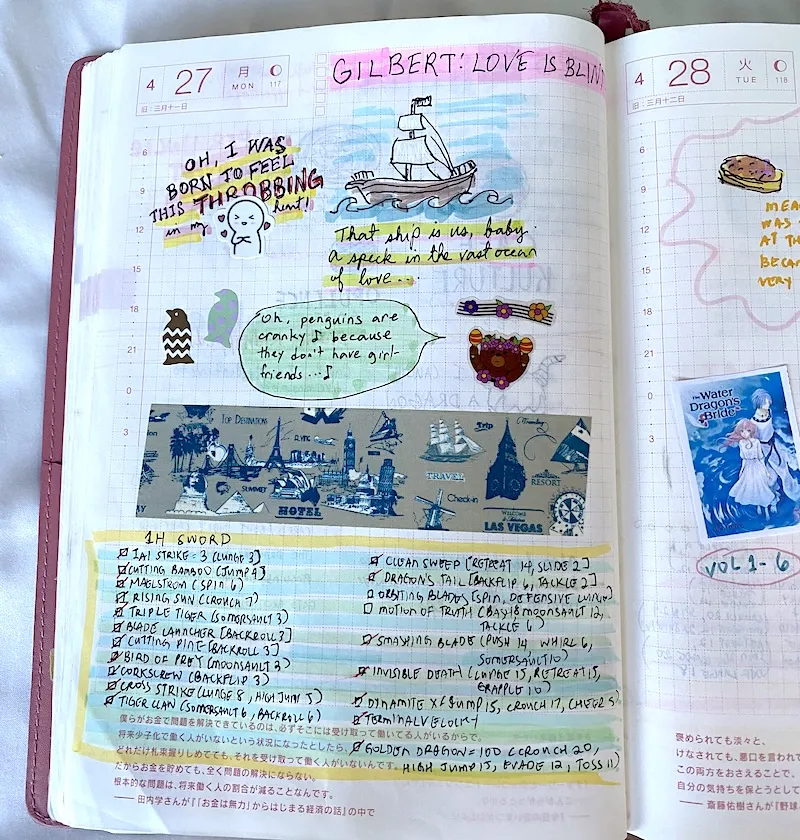 4 27 月 MON 117
旧:三月十一日
GILBERT: LOVE IS BLIN
6
9
12
15
18
21
0
3
OH, I WAS
BORN TO FEEL
THIS THROBBING
in my heart!
That ship is us, baby.
a speck in the vast ocean
of love...
"Oh, penguins are
cranky ♪ because
they don't have girl-
friends...♪
TOP DESTINATIONS
Trip
Traveling
TRAVEL
SUMMER
HOTEL
Check-in
RESORT
WELCOME
LAS VEGAS
1H SWORD
☑ IAI STRIKE = 3 [LUNGE 3]
☑ CUTTING BAMBOO [JUMP 4]
☑ MAELSTROM (SPIN 6)
☑ RISING SUN (CROUCH 7)
☑ TRIPLE TIGER (SOMERSAULT 3)
☑ BLADE LAUNCHER [BACKROLL 3]
☑ CUTTING PINE [BACKROLL 3]
☑ BIRD OF PREY (MOONSAULT 3)
☑ CORKSCREW (BACKFLIP 3)
☑ CROSS STRIKE (LUNGE 8, HIGH JUMP 5)
☑ TIGER CLAN (SOMERSAULT 6, BACKROLL 6)
☑ CLEAN SWEEP [RETREAT 14, SLIDE 2]
☑ DRAGON'S TAIL [BACKFLIP 6, TACKLE 2]
☐ ORBITING BLADES [SPIN, DEFENSIVE LUNGE]
☐ MOTION OF TRUTH (MOONSAULT 12,
TACKLE 6)
☑ SMASHING BLADE (PUSH 14, WHIRL 6,
SOMERSAULT 10)
☑ INVISIBLE DEATH (LUNGE 15, RETREAT 15,
GRAPPLE 10)
☑ DYNAMITE X (JUMP 15, CROUCH 17, CHEER 5)
☑ TERMINAL VELOCITY
☑ GOLDEN DRAGON = 100 (CROUCH 20,
HIGH JUMP 15, EVADE 12, TOSS 11)
僕らがお金で問題を解決できているのは、必ずそこには受け取って働いてる人がいるからで。
将来少子化で働く人がいないという状況になったとしたら、
どれだけ札束握りしめてても、それを受け取って働く人がいないんです。
だからお金を貯めても、全く問題の解決にならない。
根本的な問題は、将来働く人の割合が減ることなんです。
——田内学さんが『「お金は無力」からはじまる経済の話』の中で
4 28 火 TUE 118
旧:三月十二日
6
9
12
15
18
21
0
3
MEA
WAS
AT TH
BECA
VERY
The Water
Dragon's
Bride
VOL 1-6
褒められても淡々と、
けなされても、悪口を言われて
この両方をおさえることで、
自分の気持ちを保とうとして
——斎藤佑樹さんが『野球